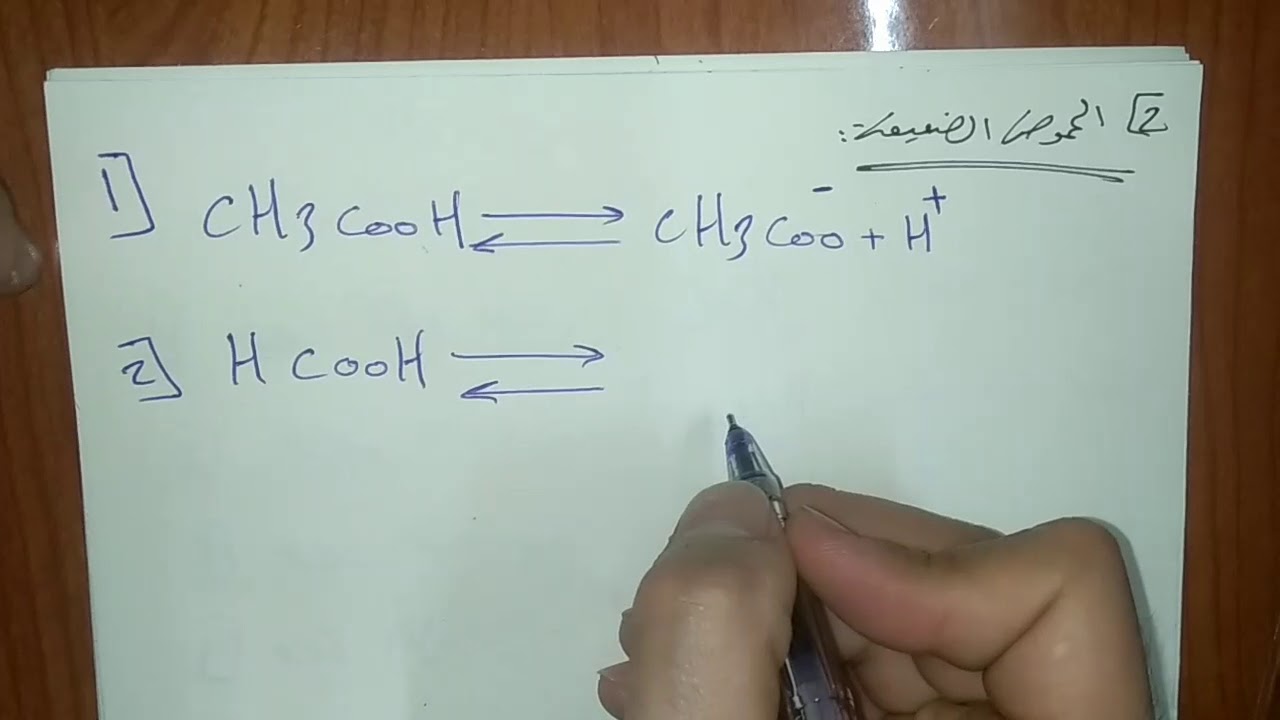 2] الحموض الضعيفة:
1] CH3COOH ⇌ CH3COO⁻ + H⁺
2] HCOOH ⇌